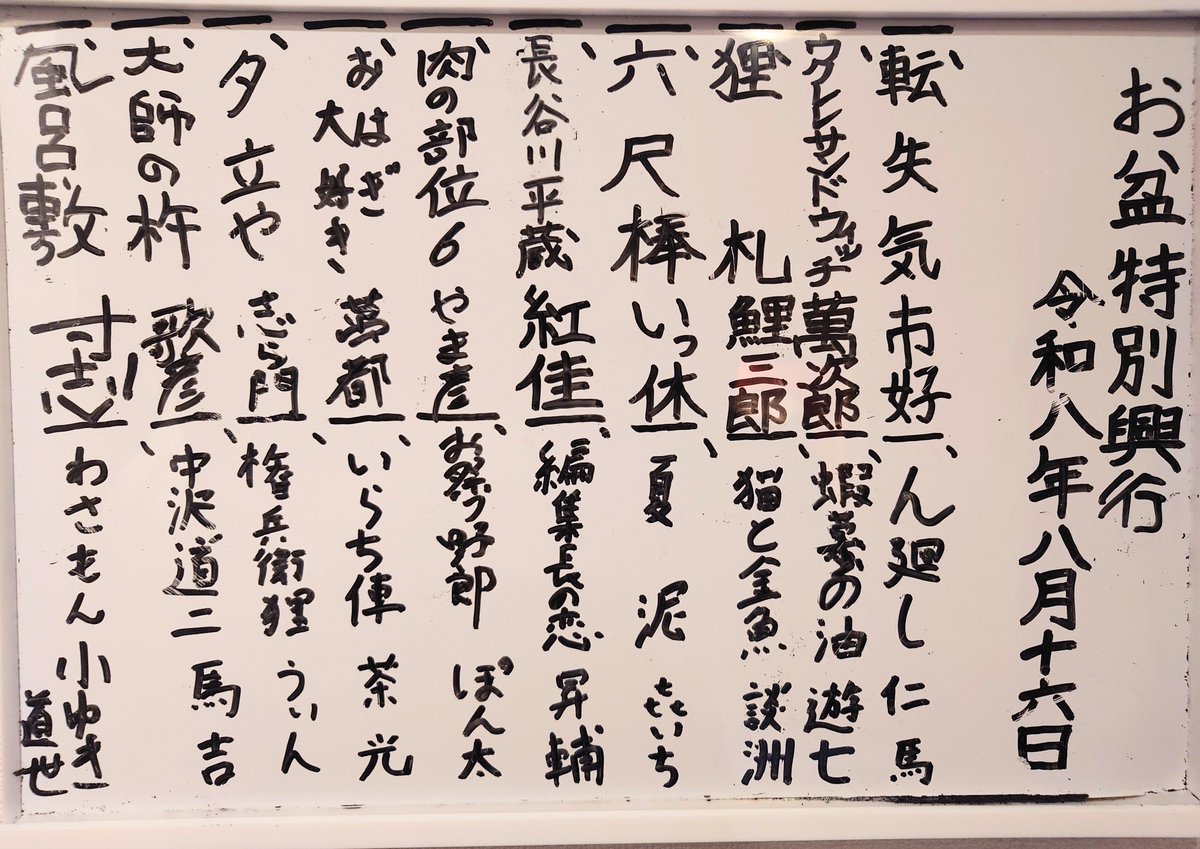 お盆特別興行
令和八年八月十六日
一、転失気 市好
一、サンドウィッチ 萬次郎
一、狸札 鯉三郎
一、六尺棒 いっ休
一、長谷川平蔵 紅佳
一、肉の部位6 やき彦
一、おはぎ大好き 萬都
一、夕立や 志ら門
一、大師の杵 歌彦
一、風呂敷 寸志
一、ん廻し 仁馬
一、蝦蟇の油 遊七
一、猫と金魚 談洲
一、夏泥 㐂いち
一、編集長の恋 昇輔
一、お祭り野郎 ぽん太
一、いらち俥 茶光
一、権兵衛狸 うぃん
一、中沢道二 馬吉
一、わさもん 小ゆき
道世